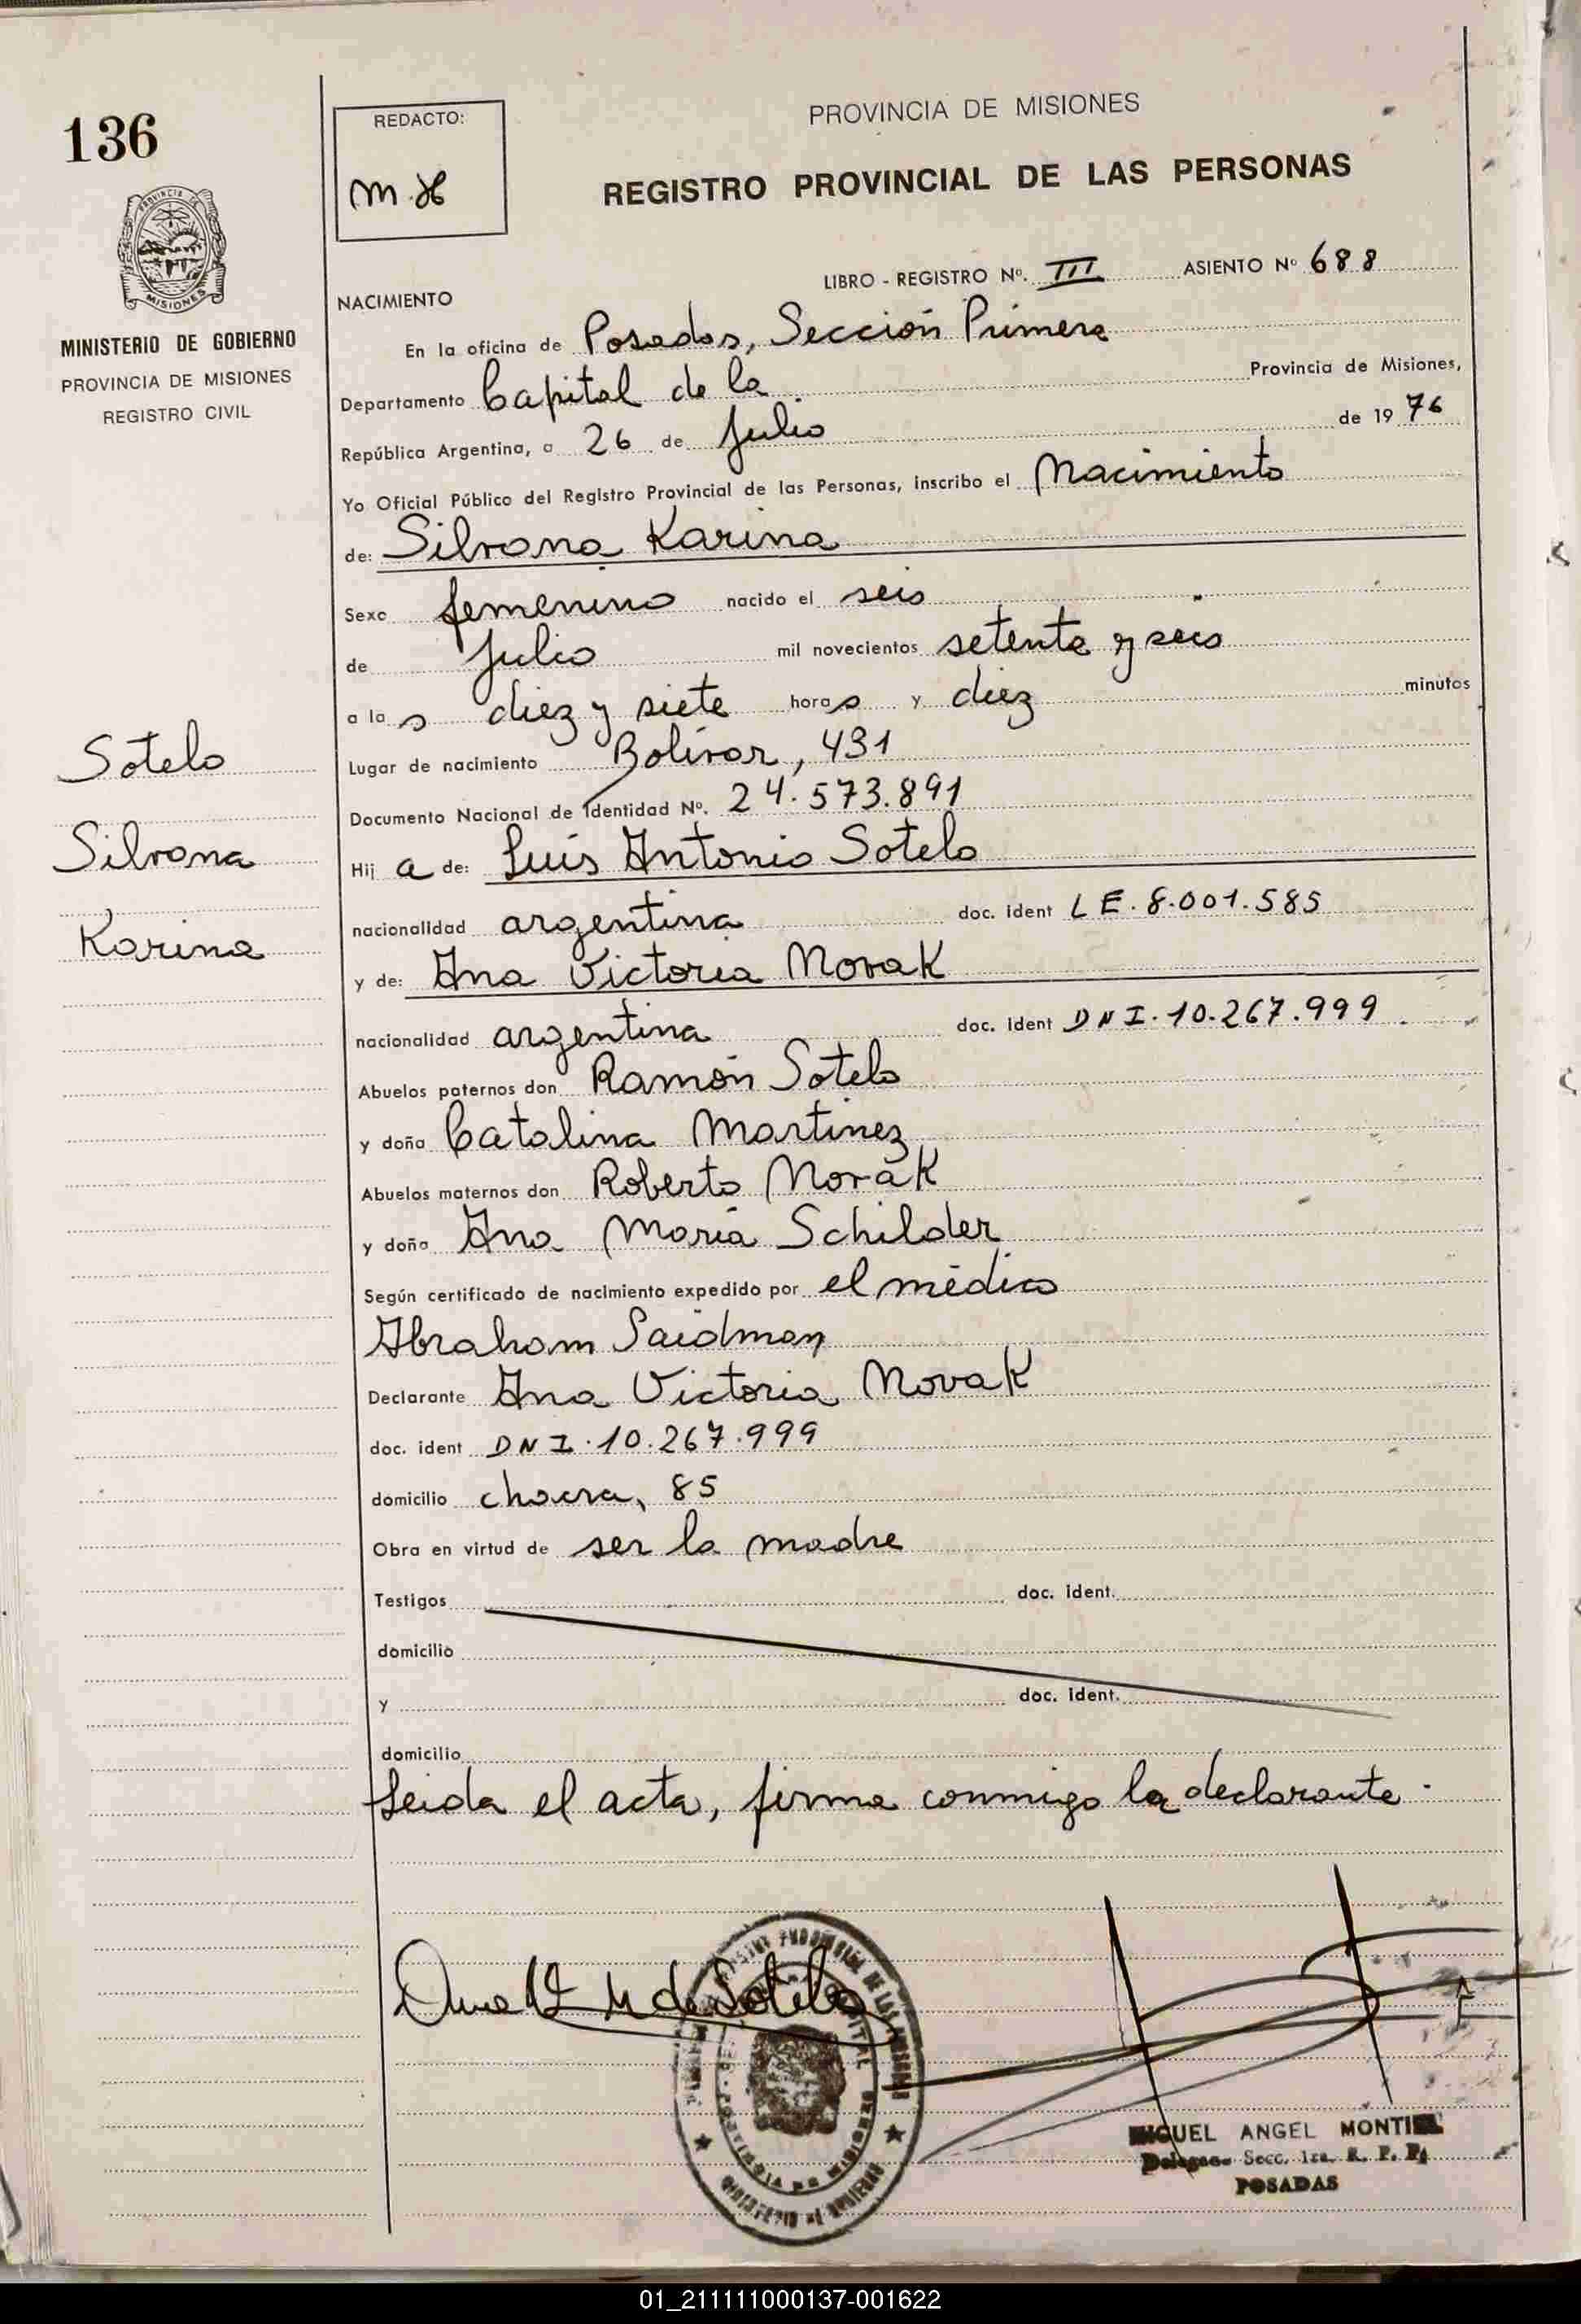 136
REDACTO:
M.H
PROVINCIA DE MISIONES
REGISTRO PROVINCIAL DE LAS PERSONAS
PROVINCIA DE
MISIONES
MINISTERIO DE GOBIERNO
PROVINCIA DE MISIONES
REGISTRO CIVIL
LIBRO - REGISTRO Nº. III ASIENTO Nº 688
NACIMIENTO
En la oficina de Posadas, Sección Primera
Departamento Capital de la Provincia de Misiones,
República Argentina, a 26 de Julio de 1976
Yo Oficial Público del Registro Provincial de las Personas, inscribo el Nacimiento
de: Silvana Karina
Sexo femenino nacido el seis
de Julio mil novecientos setenta y seis
a las diez y siete horas y diez minutos
Lugar de nacimiento Bolívar, 431
Documento Nacional de Identidad Nº. 24.573.891
Hija de: Luis Antonio Sotelo
nacionalidad argentina doc. ident LE. 8.001.585
y de: Ana Victoria Novak
nacionalidad argentina doc. ident DNI. 10.267.999
Abuelos paternos don Ramón Sotelo
y doña Catalina Martinez
Abuelos maternos don Roberto Novak
y doña Ana María Schilder
Según certificado de nacimiento expedido por el médico
Abraham Saidman
Declarante Ana Victoria Novak
doc. ident DNI. 10.267.999
domicilio chacra, 85
Obra en virtud de ser la madre
Testigos doc. ident.
domicilio
y doc. ident.
domicilio
Leida el acta, firma conmigo la declarante.
Sotelo
Silvana
Karina
Ana V N de Sotelo
PROVINCIAL DE LAS PERSONAS
CAPITAL
PROVINCIA DE MISIONES
MINISTERIO DE GOBIERNO
MIGUEL ANGEL MONTIEL
Secc. 1ra. R. P. P.
POSADAS
01_211111000137-001622